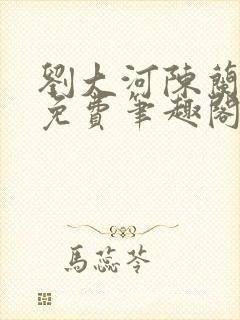 劉大河陳蘭
免費筆趣閣
馬蕊苓